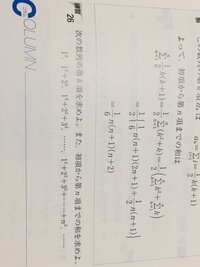 よって，初項から第n項までの和は
$\sum_{k=1}^{n} \frac{1}{2}k(k+1) = \frac{1}{2}\sum_{k=1}^{n}(k^2+k) = \frac{1}{2}\left(\sum_{k=1}^{n}k^2+\sum_{k=1}^{n}k\right)$
$= \frac{1}{2}\left\{\frac{1}{6}n(n+1)(2n+1)+\frac{1}{2}n(n+1)\right\}$
$= \frac{1}{6}n(n+1)(n+2)$
練習 26 次の数列の第k項を求めよ。また，初項から第n項までの和を求めよ。
1², 1²+2², 1²+2²+3², ……, 1²+2²+3²+……+n², ……
COLUMN